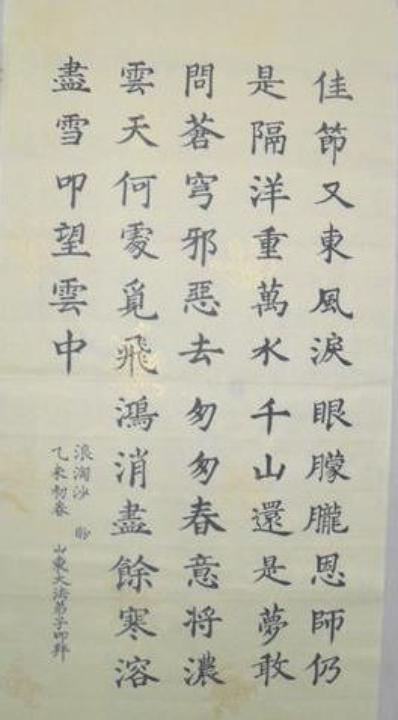 佳節又東風淚眼朦朧恩師仍
是隔洋重萬水千山還是夢敢
問蒼穹邪惡去匆匆春意將濃
雲天何處覓飛鴻消盡餘寒溶
盡雪叩望雲中
浪淘沙 盼
乙未初春 山東大法弟子叩拜